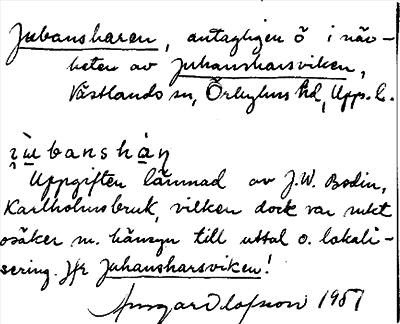 Jubansharen, antagligen ö i när-
heten av Juhansharsviken,
Västlands sn, Örbyhus hd, Upps. l.
ju̲bansha̲ṇ
Uppgiften lämnad av J.W. Bodin,
Karlholmsbruk, vilken dock var rätt
osäker m. hänsyn till uttal o. lokali-
sering. Jfr Juhansharsviken!
Ragnar Olofsson 1957